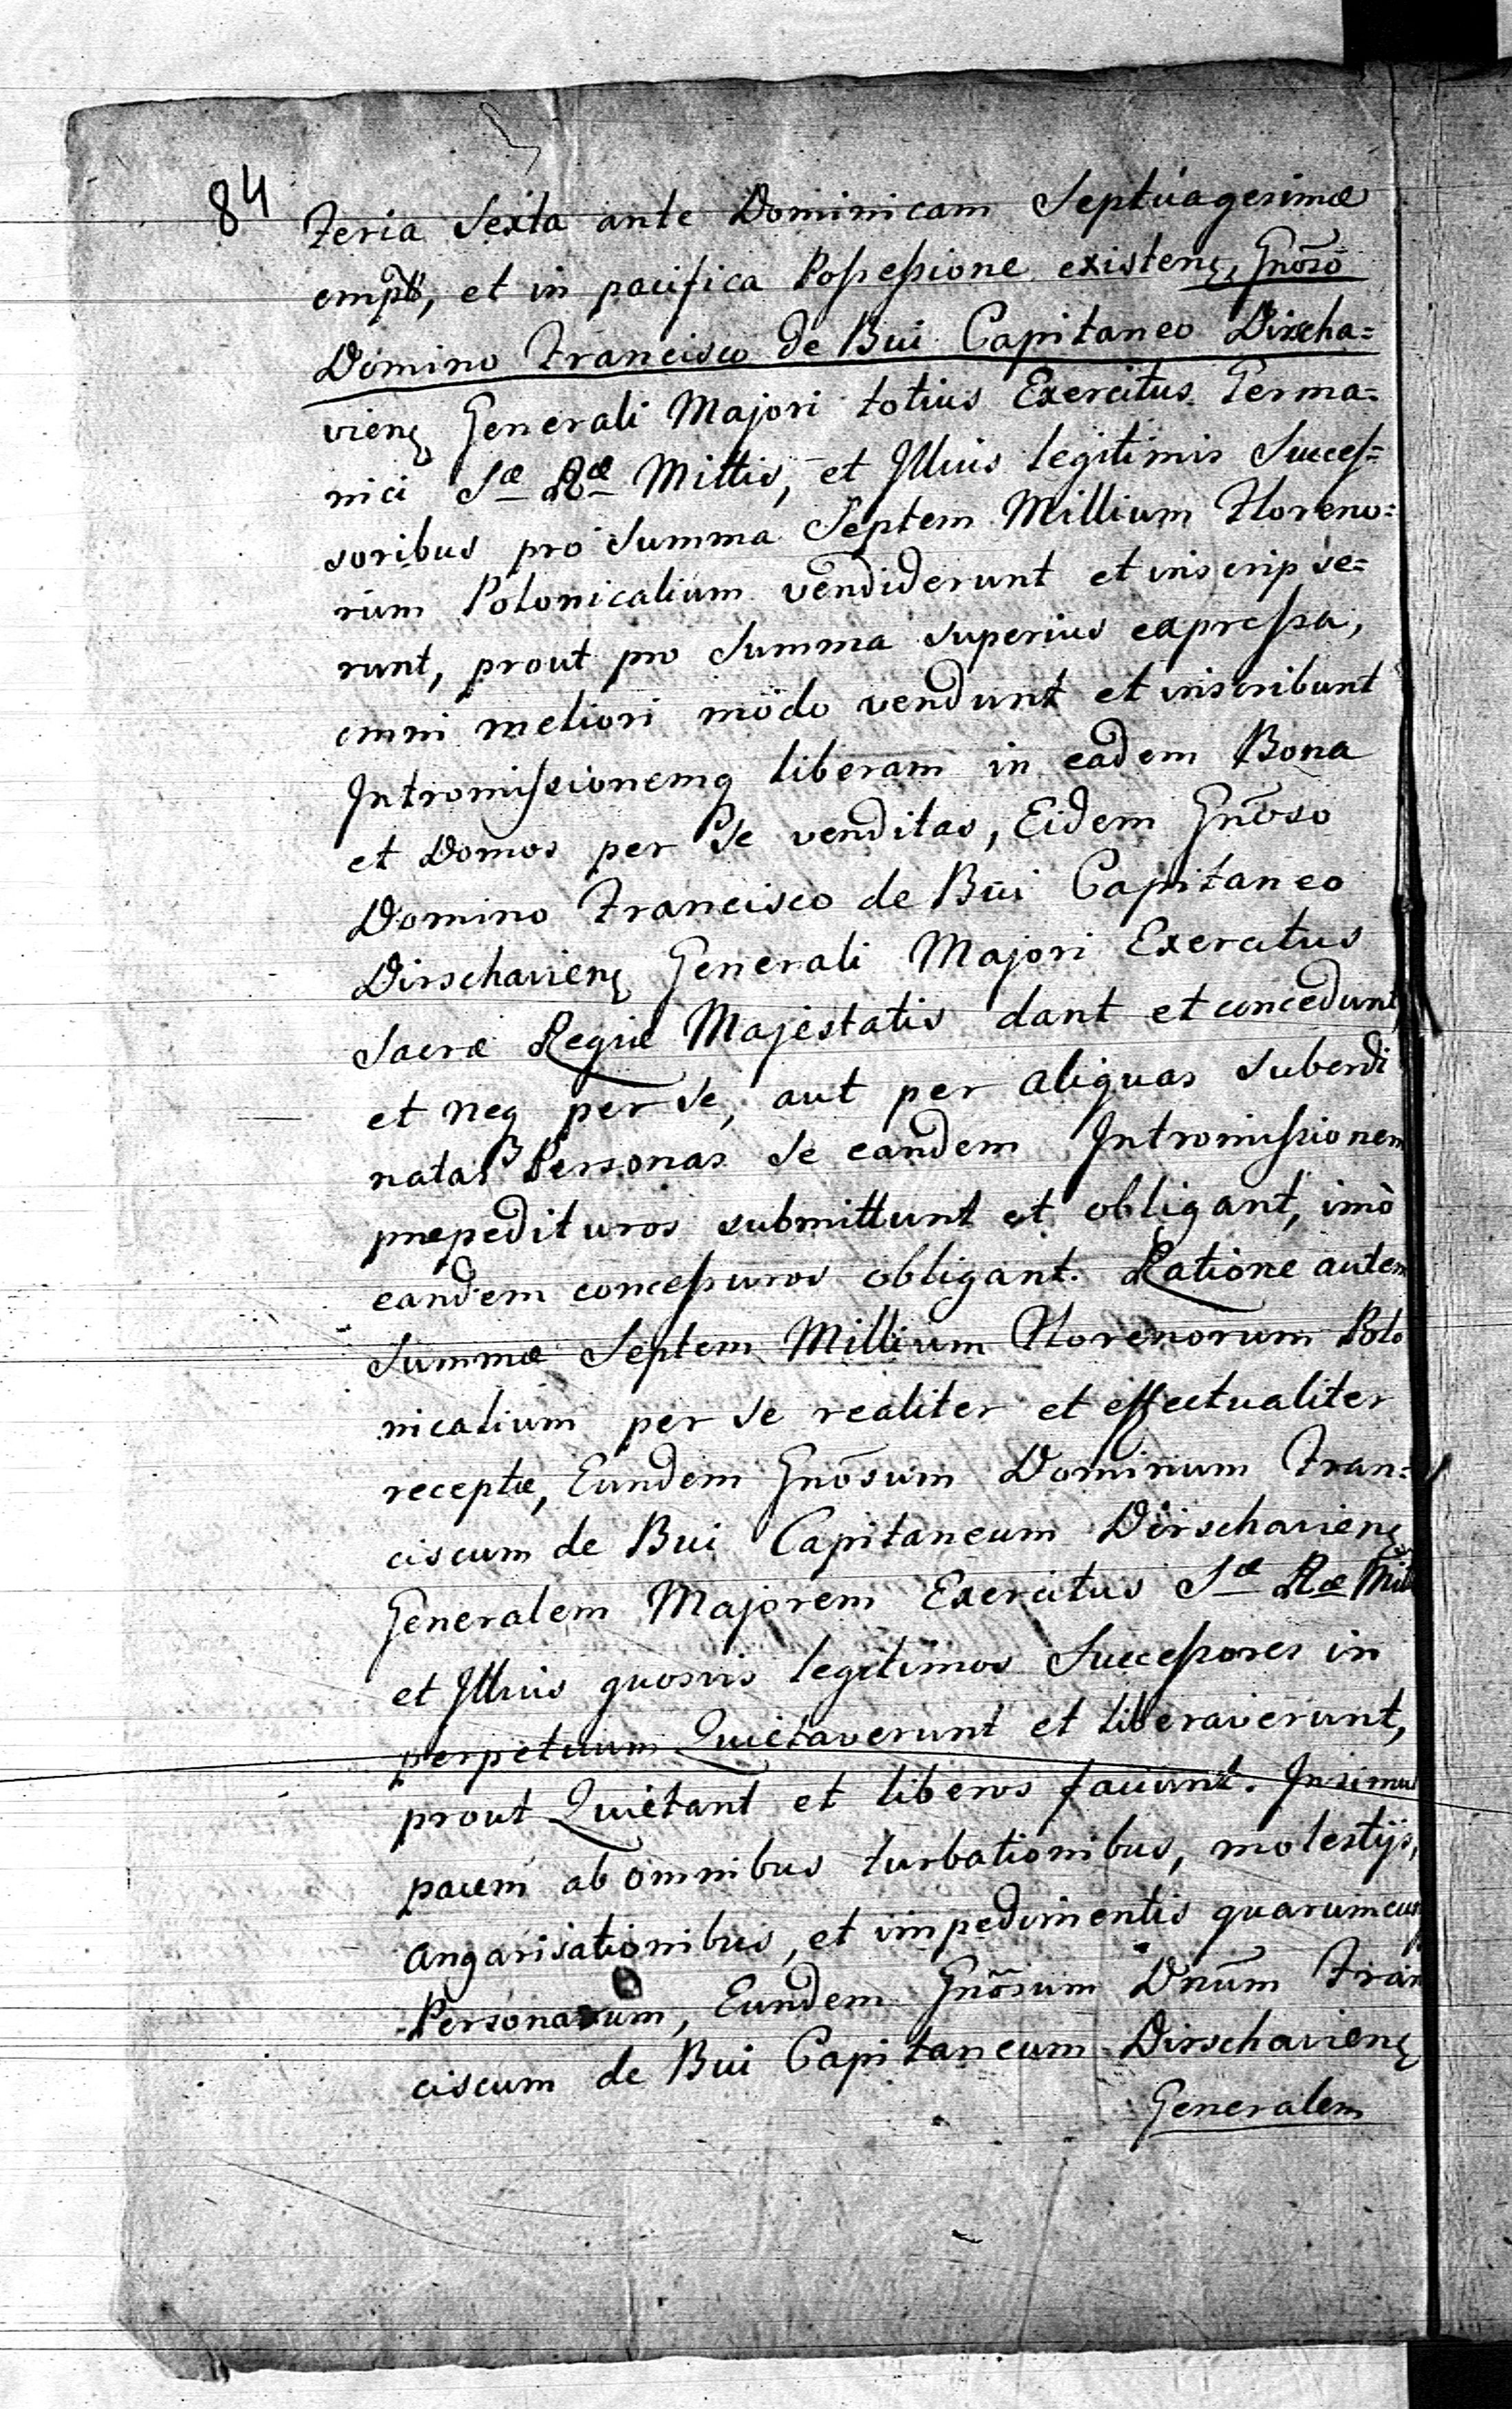 84
Feria Sexta ante Dominicam Septuagesimæ
empt, et in pacifica Poſseſsione existenę, Gnõso
Domino Francisco de Bui Capitaneo Dirscha=
vienę Generali Majori totius Exercitus Germa=
nici Sæ Ræ Mittis, et Illius legitimis Succeſ=
soribus pro Summa Septem Millium Floreno=
rum Polonicalium vendiderunt et inscripse=
runt, prout pro Summa superius expreſsa,
omni meliori modo vendunt et inscribunt
Intromiſsionemq liberam in eadem Bona
et Domos per Se venditas, Eidem Gnõso
Domino Francisco de Bui Capitaneo
Dirschavienę Generali Majori Exercitus
Sacræ Regiæ Majestatis dant et concedunt
et neq per se, aut per aliquas subordi
natas Personas se eandem Intromiſsionem
præpedituros submittunt et obligant, imò
eandem conceſsuros obligant. Ratione autem
Summæ Septem Millium Florenorum Polo
nicalium per se realiter et effectualiter
receptæ, Eundem Gnõsum Dominum Fran=
ciscum de Bui Capitaneum Dirschavienę
Generalem Majorem Exercitus Sæ Ræ
et Illius quosvis legitimos Succeſsores in
perpetuum Quietaverunt et liberaverunt,
prout Quietant et liberos faciunt. Insimul
pacem ab omnibus turbationibus, molestijs,
angarisationibus, et impedimentis quarumcunq
Personarum, Eundem Gnõsum Dnũm Fran
ciscum de Bui Capitaneum Dirschavienę
Generalem